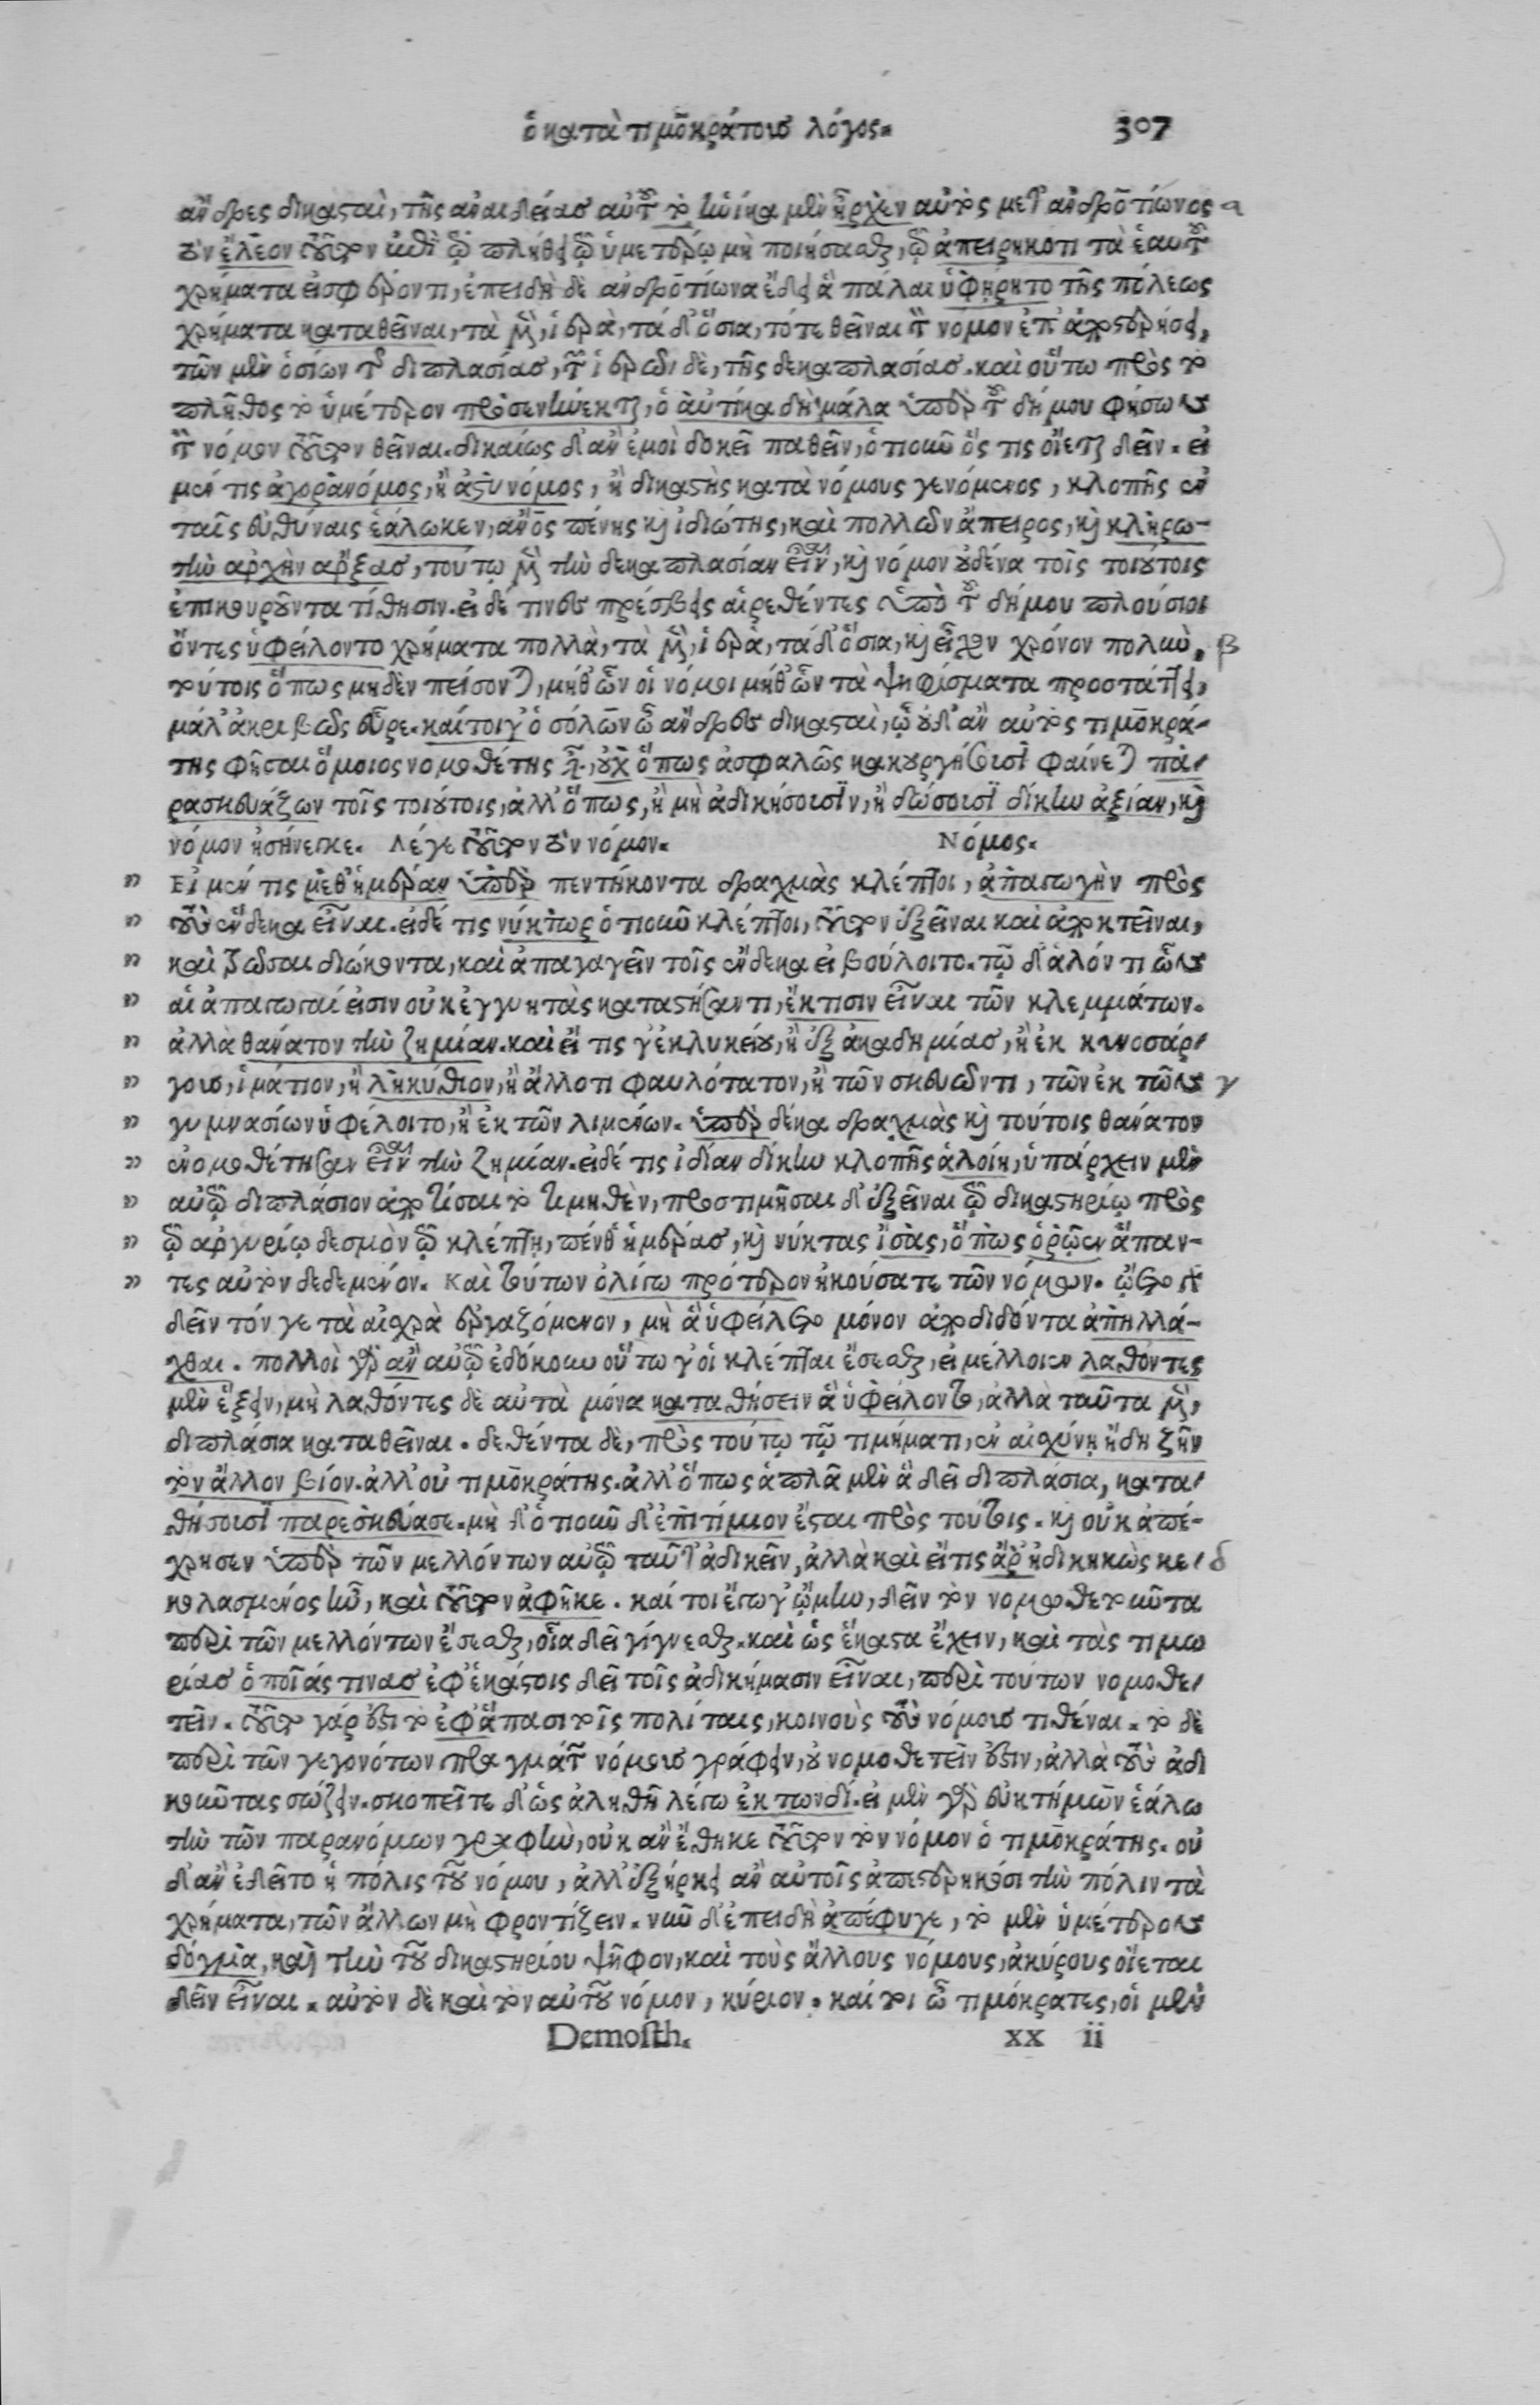 ὁ κατὰ τιμοκράτους λόγος. 307
ἄνδρες δικασταὶ, τῆς ἀναιδείας αὐτοῦ τὸ ἡνίκα μὲν ἦρχεν αὐτὸς μετ' ἀνδροτίωνος α
τὸν ἔλεον τοῦτον ἐπὶ τῷ πλήθει τῷ ὑμετέρῳ μὴ ποιήσασθαι, τῷ ἀπειρηκότι τὰ ἑαυτοῦ
χρήματα εἰσφέροντι, ἐπειδὴ δὲ ἀνδροτίωνα ἔδει ἃ πάλαι ὑφῄρητο τῆς πόλεως
χρήματα καταθεῖναι, τὰ μὲν, ἱερὰ, τὰ δ' ὅσια, τότε θεῖναι τὸν νόμον ἐπ' ἀποστερήσει,
τῶν μὲν ὁσίων τῆς διπλασίας, τῶν ἱερῶν δὲ, τῆς δεκαπλασίας. καὶ οὕτω πρὸς τὸ
πλῆθος τὸ ὑμέτερον προσενήνεκται, ὁ αὐτίκα δὴ μάλα ὑπὲρ τοῦ δήμου φήσων
τὸν νόμον τοῦτον θεῖναι. δικαίως δ' ἂν ἐμοὶ δοκεῖ παθεῖν, ὁτιοῦν ὅς τις οἴεται δεῖν. εἰ
μέν τις ἀγορανόμος, ἢ ἀστυνόμος, ἢ δικαστὴς κατὰ νόμους γενόμενος, κλοπῆς ἐν
ταῖς εὐθύναις ἑάλωκεν, ἄνος πένης καὶ ἰδιώτης, καὶ πολλῶν ἄπειρος, καὶ κληρω-
τὴν ἀρχὴν ἄρξας, τούτῳ μὲν τὴν δεκαπλασίαν εἶναι, καὶ νόμον οὐδένα τοῖς τοιούτοις
ἐπικουροῦντα τίθησιν. εἰ δέ τινες πρέσβεις αἱρεθέντες ὑπὸ τοῦ δήμου πλούσιοι
ὄντες ὑφείλοντο χρήματα πολλὰ, τὰ μὲν, ἱερὰ, τὰ δ' ὅσια, καὶ εἶχον χρόνον πολὺν. β
τούτοις ὅπως μηδὲν πείσονται, μήθ' ὧν οἱ νόμοι μήθ' ὧν τὰ ψηφίσματα προστάττει,
μάλ' ἀκριβῶς εὗρε. καίτοι γ' ὁ σόλων ὦ ἄνδρες δικασταὶ, ᾧ οὐδ' ἂν αὐτὸς τιμοκρά-
της φῆσαι ὅμοιος νομοθέτης εἶναι, οὐχ ὅπως ἀσφαλῶς κακουργήσουσι φαίνεται πα-
ρασκευάζων τοῖς τοιούτοις, ἀλλ' ὅπως, ἢ μὴ ἀδικήσουσιν, ἢ δώσουσι δίκην ἀξίαν, καὶ
νόμον εἰσήνεγκε. Λέγε τοῦτον τὸν νόμον. Νόμος.
" Εἰ μέν τις μεθ' ἡμέραν ὑπὲρ πεντήκοντα δραχμὰς κλέπτοι, ἀπαγωγὴν πρὸς
" τοὺς ἕνδεκα εἶναι. εἰ δέ τις νύκτωρ ὁτιοῦν κλέπτοι, τοῦτον ἐξεῖναι καὶ ἀποκτεῖναι,
" καὶ τρῶσαι διώκοντα, καὶ ἀπαγαγεῖν τοῖς ἕνδεκα εἰ βούλοιτο. τῷ δ' ἁλόντι ὧν
" αἱ ἀπαγωγαί εἰσιν οὐκ ἐγγυητὰς καταστήσαντι, ἔκτισιν εἶναι τῶν κλεμμάτων.
" ἀλλὰ θάνατον τὴν ζημίαν. καὶ εἴ τις γ' ἐκ λυκείου, ἢ ἐξ ἀκαδημίας, ἢ ἐκ κυνοσάρ-
" γους, ἱμάτιον, ἢ ληκύθιον, ἢ ἄλλο τι φαυλότατον, ἢ τῶν σκευῶν τι, τῶν ἐκ τῶν γ
" γυμνασίων ὑφέλοιτο, ἢ ἐκ τῶν λιμένων. ὑπὲρ δέκα δραχμὰς καὶ τούτοις θάνατον
" ἐνομοθέτησεν εἶναι τὴν ζημίαν. εἰ δέ τις ἰδίαν δίκην κλοπῆς ἁλοίη, ὑπάρχειν μὲν
" αὐτῷ διπλάσιον ἀποτίσαι τὸ τιμηθὲν, προστιμῆσαι δ' ἐξεῖναι τῷ δικαστηρίῳ πρὸς
" τῷ ἀργυρίῳ δεσμὸν τῷ κλέπτῃ, πένθ' ἡμέρας, καὶ νύκτας ἴσας, ὅπως ὁρῷεν ἅπαν-
" τες αὐτὸν δεδεμένον. Καὶ τούτων ὀλίγῳ πρότερον ἠκούσατε τῶν νόμων. ᾤετο γὰρ
δεῖν τόν γε τὰ αἰσχρὰ ἐργαζόμενον, μὴ ἃ ὑφείλετο μόνον ἀποδιδόντα ἀπηλλά-
χθαι. πολλοὶ γὰρ ἂν αὐτῷ ἐδόκουν οὕτω γ' οἱ κλέπται ἔσεσθαι, εἰ μέλλοιεν λαθόντες
μὲν ἕξειν, μὴ λαθόντες δὲ αὐτὰ μόνα καταθήσειν ἃ ὑφείλοντο, ἀλλὰ ταῦτα μὲν,
διπλάσια καταθεῖναι. δεθέντα δὲ, πρὸς τούτῳ τῷ τιμήματι, ἐν αἰσχύνῃ ἤδη ζῆν
τὸν ἄλλον βίον. ἀλλ' οὐ τιμοκράτης. ἀλλ' ὅπως ἁπλᾶ μὲν ἃ δεῖ διπλάσια, κατα-
θήσουσι παρεσκεύασε. μὴ δ' ὁτιοῦν δ' ἐπιτίμιον ἔσται πρὸς τούτοις. καὶ οὐκ ἀπέ-
χρησεν ὑπὲρ τῶν μελλόντων αὐτῷ ταῦτ' ἀδικεῖν, ἀλλὰ καὶ εἴ τις ἄρ' ἠδικηκὼς κε- δ
κολασμένος ἦν, καὶ τοῦτον ἀφῆκε. καίτοι ἔγωγ' ᾤμην, δεῖν τὸν νομοθετοῦντα
περὶ τῶν μελλόντων ἔσεσθαι, οἷα δεῖ γίγνεσθαι. καὶ ὡς ἕκαστα ἔχειν, καὶ τὰς τιμω
ρίας ὁποῖάς τινας ἐφ' ἑκάστοις δεῖ τοῖς ἀδικήμασιν εἶναι, περὶ τούτων νομοθε-
τεῖν. τοῦτο γάρ ἐστι τὸ ἐφ' ἅπασι τοῖς πολίταις, κοινοὺς τοὺς νόμους τιθέναι. τὸ δὲ
περὶ τῶν γεγονότων πραγμάτων νόμους γράφειν, οὐ νομοθετεῖν ἐστιν, ἀλλὰ τοὺς ἀδι
κοῦντας σώζειν. σκοπεῖτε δ' ὡς ἀληθῆ λέγω ἐκ τωνδί. εἰ μὲν γὰρ εὐκτήμων ἑάλω
τὴν τῶν παρανόμων γραφὴν, οὐκ ἂν ἔθηκε τοῦτον τὸν νόμον ὁ τιμοκράτης. οὐ
δ' ἂν ἐδεῖτο ἡ πόλις τοῦ νόμου, ἀλλ' ἐξήρκει ἂν αὐτοῖς ἀπεστερηκόσι τὴν πόλιν τὰ
χρήματα, τῶν ἄλλων μὴ φροντίζειν. νῦν δ' ἐπειδὴ ἀπέφυγε, τὸ μὲν ὑμέτερον
δόγμα, καὶ τὴν τοῦ δικαστηρίου ψῆφον, καὶ τοὺς ἄλλους νόμους, ἀκύρους οἴεται
δεῖν εἶναι. αὐτὸν δὲ καὶ τὸν αὐτοῦ νόμον, κύριον. καίτοι ὦ τιμόκρατες, οἱ μὲν
Demosth. xx ii